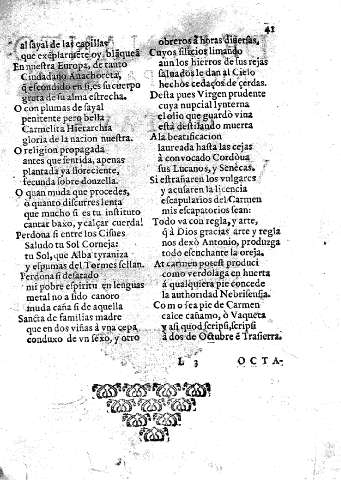 41
al sayal de las capillas
que exemplarmēte oy blāqueā
En nuestra Europa, de tanto
Ciudadano Anachoreta,
q̄ escondido en si, es su cuerpo
gruta de su alma estrecha.
O con plumas de sayal
penitente pero bella
Carmelita Hierarchia
gloria de la nacion nuestra.
O religion propagada
antes que sentida, apenas
plantada ya floreciente,
fecunda sobre donzella.
O quan muda que procedes,
ò quanto discurres lenta
que mucho si es tu instituto
cantar baxo, y calçar cuerda!
Perdona si entre los Cisnes
Saludo tu Sol Corneja:
tu Sol, que Alba tyraniza
y espumas del Tormes sellan.
Perdona si desatado
mi pobre espiritu en lenguas
metal no a sido canoro
muda caña si de aquella
Sancta de familias madre
que en dos viñas à vna cepa
conduxo de vn sexo, y otro
obreros â horas diuersas.
Cuyos silicios limando
aun los hierros de sus rejas
saluados le dan al Cielo
hechos cedaços de çerdas.
Desta pues Virgen prudente
cuya nupcial lynterna
el olio que guardò viua
està destilando muerta
A la beatificacion
laureada hasta las cejas
à convocado Cordoua
sus Lucanos, y Senècas.
Si estrañaren los vulgares
y acusaren la licencia
escapularios del Carmen
mis escapatorios sean:
Todo va con regla, y arte,
q̄ â Dios gracias arte y regla
nos dexò Antonio, produzga
todo escuchante la oreja.
At carmen potest produci
como verdolaga en huerta
à qualquiera pie concede
la authoridad Nebrisensia.
Como sea pie de Carmen
calce cañamo, ò Vaqueta
y asi quod scripsi, scripsi
à dos de Octubre ē Trasierra.
L 3 OCTA-